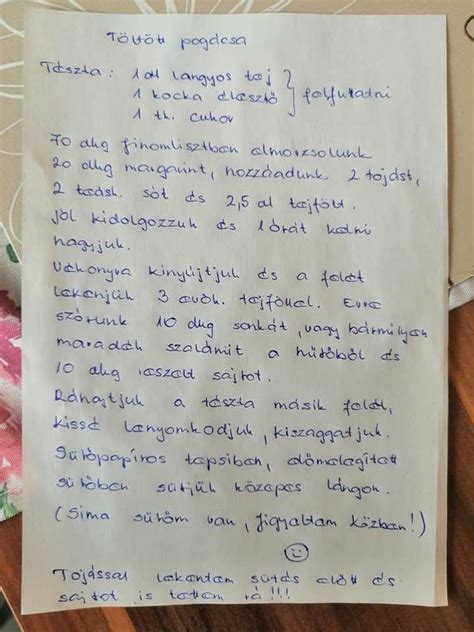 Töltött pogácsa
Tészta: 1 dl langyos tej
1 kocka élesztő } felfuttatni
1 tk. cukor
70 dkg finomlisztben elmorzsolunk
20 dkg margarint, hozzáadunk 2 tojást,
2 teásk. sót és 2,5 dl tejfölt.
jól kidolgozzuk és 1 órát kelni
hagyjuk.
Vékonyra kinyújtjuk és a felét
lekenjük 3 evők. tejföllel. Erre
szórunk 10 dkg sonkát, vagy bármilyen
maradék szalámit a hűtőből és
10 dkg reszelt sajtot.
Ráhajtjuk a tészta másik felét,
kissé lenyomkodjuk, kiszaggatjuk.
Sütőpapíros tepsiben, előmelegített
sütőben sütjük közepes lángon.
(Sima sütőm van, figyeltem közben!)
Tojással lekentem sütés előtt és
sajtot is tettem rá!!!